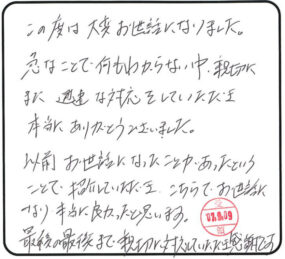 この度は大変お世話になりました。
急なことで何もわからない中、親切に
また 迅速な対応をしていただき
本当にありがとうございました。
以前 お世話になったことがあったという
ことで 紹介していただき こちらで お世話に
なり 本当に良かったと思います。
最後の最後まで 親切に対応していただき感謝です